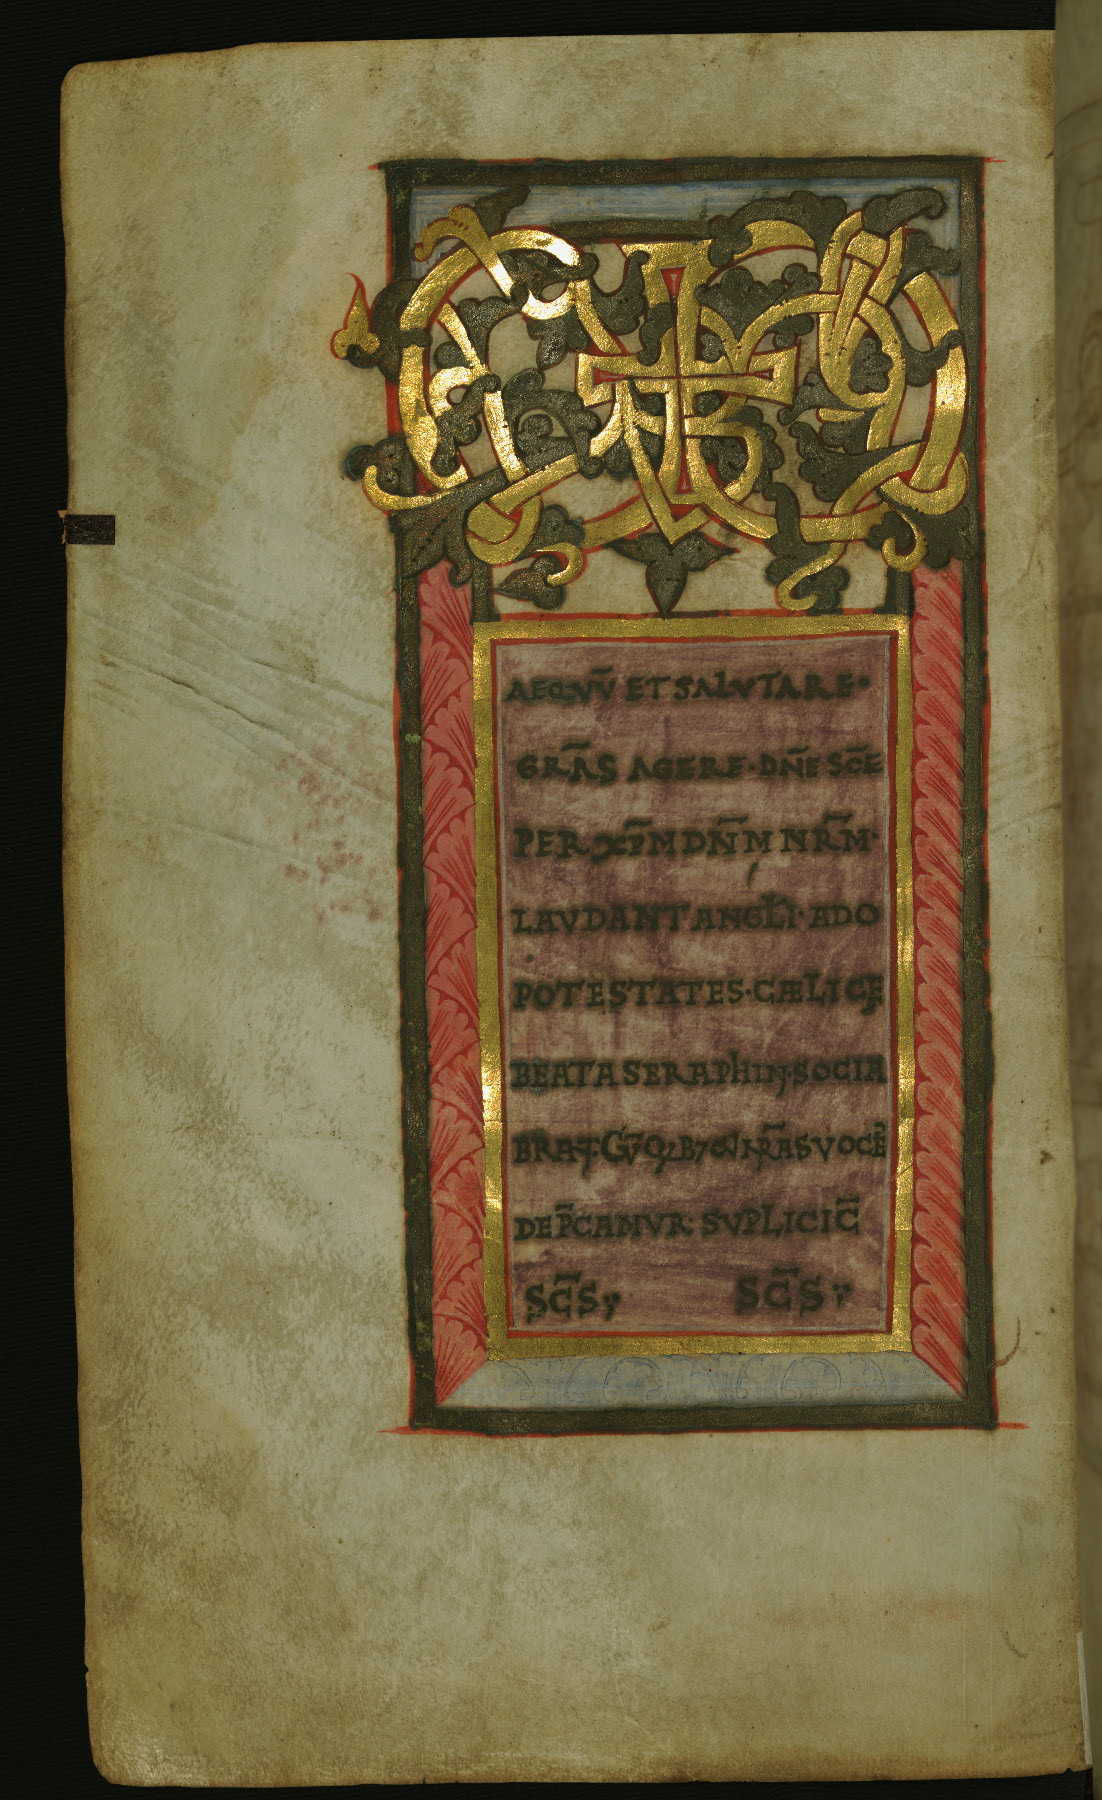 AEQUŪ ET SALVTARE·
GRĀS AGERE·DÑE SC̄E
PER XP̄M DÑM NR̄M·
LAVDANT ANGŁI·ADO
POTESTATES·CÆLI CĘ
BEATA SERAPHIM·SOCIA
DEP̄CAMVR SVPLICIC̄
SC̄S SC̄S